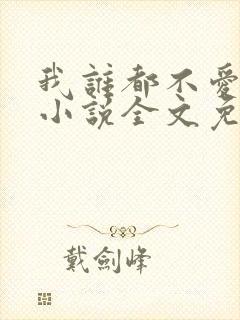 我誰都不愛
小說全文免
戴劍峰